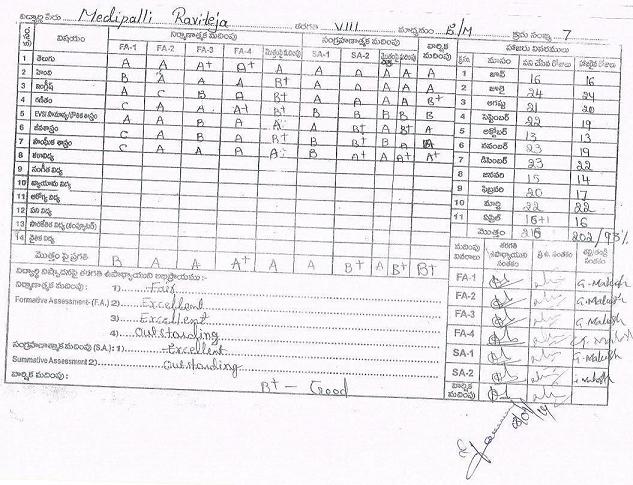 విద్యార్థి పేరు : Medipalli Raviteja తరగతి VIII మాధ్యమం E/M క్రమ సంఖ్య 7
విషయం నిర్మాణాత్మక మదింపు సంగ్రహణాత్మక మదింపు వార్షిక మదింపు హాజరు వివరములు
FA-1 FA-2 FA-3 FA-4 SA-1 SA-2 మాసం పని చేసిన రోజులు హాజరైన రోజులు
1 తెలుగు A A A+ A+ A A A A A 1 జూన్ 16 16
2 హింది B A A A B+ A A A A 2 జూలై 24 24
3 ఇంగ్లీష్ A C B A A A A A B+ 3 ఆగష్టు 21 20
4 గణితం C A A A+ B+ B B B B 4 సెప్టెంబర్ 22 19
5 EVS/సామాన్య/భౌతిక శాస్త్రం A A B A A A B+ A B+ A 5 అక్టోబర్ 13 13
6 జీవశాస్త్రం C A B A B+ B A B A 6 నవంబర్ 23 19
7 సాంఘిక శాస్త్రం C A A A A B A+ A A+ A+ 7 డిసెంబర్ 23 22
8 కళావిద్య 8 జనవరి 15 14
9 సంగీత విద్య 9 ఫిబ్రవరి 20 17
10 వ్యాయామ విద్య 10 మార్చి 22 22
11 ఆరోగ్య విద్య 11 ఏప్రిల్ 16+1 16
12 పని విద్య మొత్తం 216 202/93%
13 సాంకేతిక విద్య (కంప్యూటర్)
14 నైతిక విద్య
మొత్తం పై ప్రగతి B A A A+ A A B+ A B+ B+
మదింపు వివరాలు తరగతి ఉపాధ్యాయుని సంతకం ప్ర.ఉ. సంతకం తల్లి/తండ్రి సంతకం
విద్యార్థి నిష్పాదనపై తరగతి ఉపాధ్యాయుని అభిప్రాయము :-
నిర్మాణాత్మక మదింపు : 1) Fair FA-1 G. Mallesh
Formative Assessment- (F.A.) 2) Excellent FA-2 G. Mallesh
3) Excellent FA-3 G. Mallesh
4) Outstanding FA-4 G. Mallesh
సంగ్రహణాత్మక మదింపు (S.A.) : 1) Excellent SA-1 G. Mallesh
Summative Assessment 2) Outstanding SA-2
వార్షిక మదింపు : B+ - Good వార్షిక మదింపు